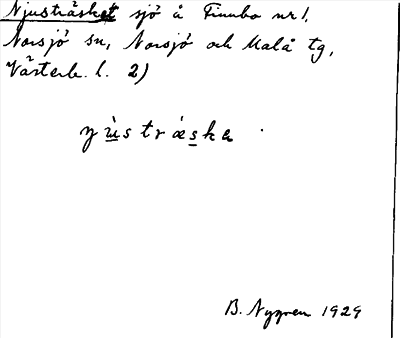 Njusträsket sjö å Finnbo nr 1,
Norsjö sn, Norsjö och Malå tg,
Västerb. l. 2)
yùstræska
B. Nygren 1929